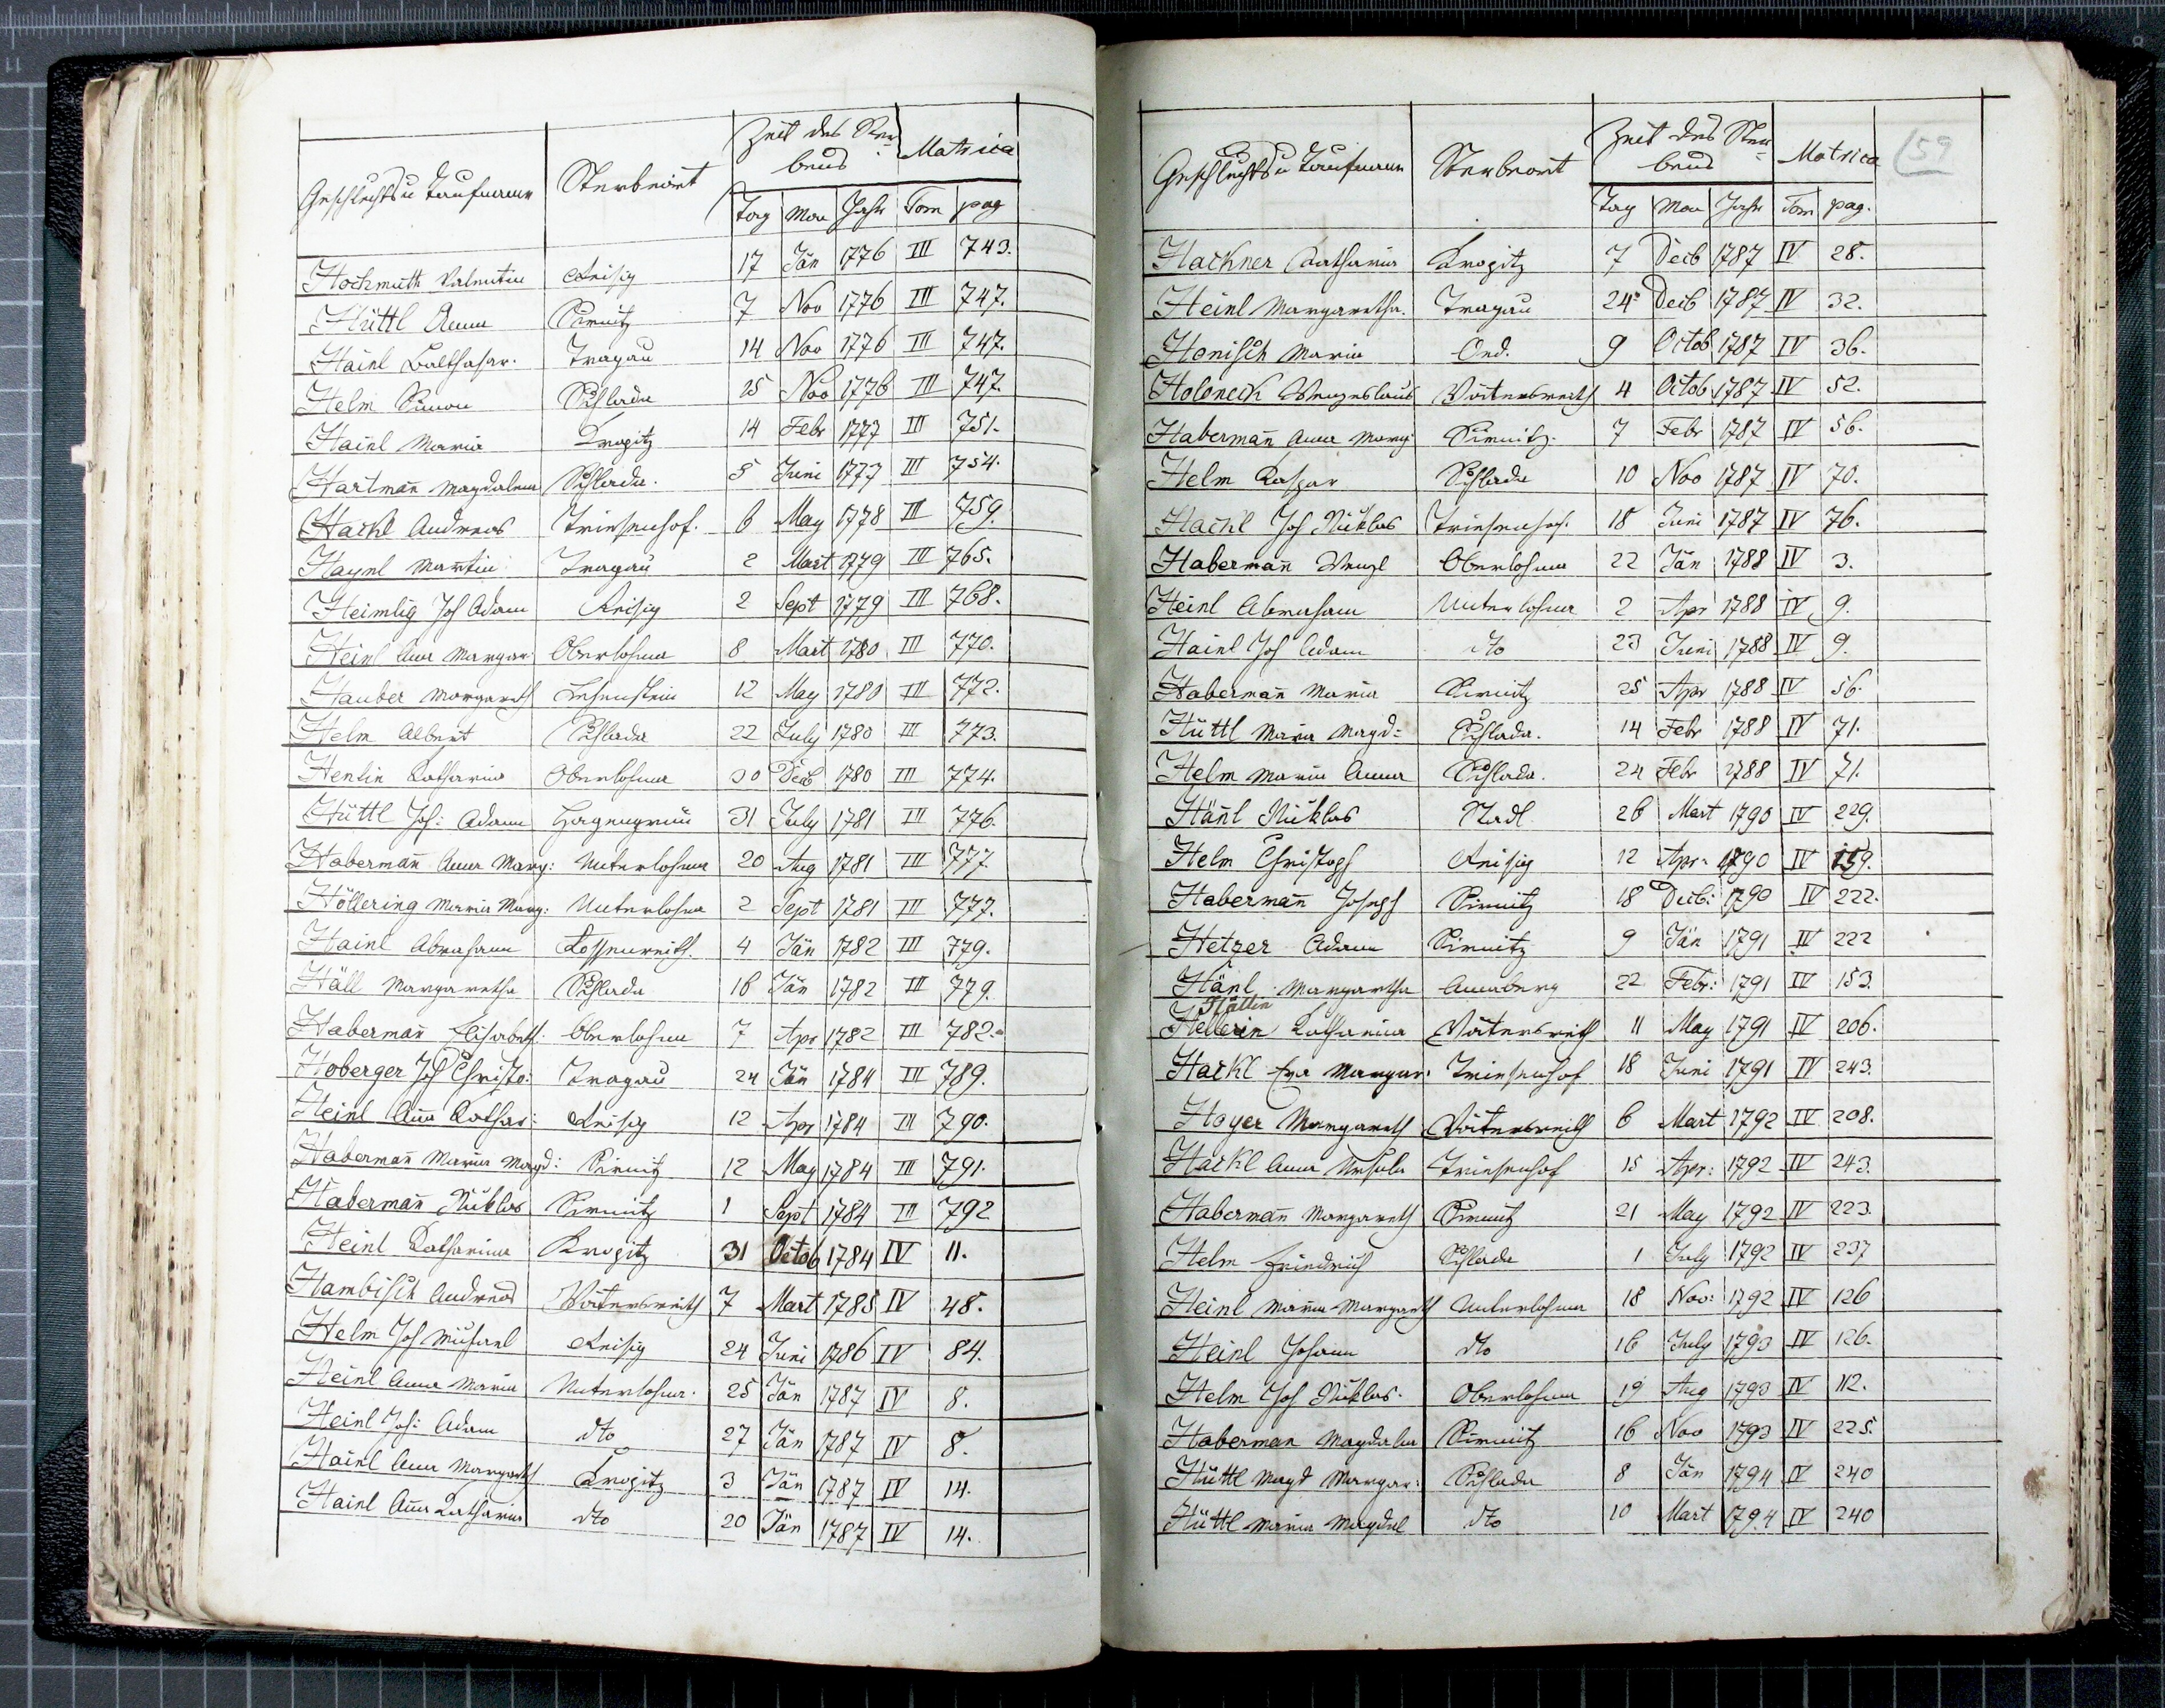 Geschlechts u Taufname Sterbeort Zeit des Ster= bens Matrica
Tag Mon Jahr Tom pag
Hochmuth Valentin Reisig 17 Jän 1776 III 743.
Hüttl Anna Sirmitz 7 Nov 1776 III 747.
Hainl Balthasar. Tragau 14 Nov 1776 III 747.
Helm Simon Schlada 25 Nov 1776 III 747.
Hainl Maria Kropitz 14 Febr 1777 III 751.
Hartmañ Magdalena Schlada. 5 Juni 1777 III 754.
Hackl Andreas Triesenhof. 6 May 1778 III 759.
Haynl Martin Tragau 2 Mart 1779 III 765.
Heimlig Joh Adam Reisig 2 Sept 1779 III 768.
Heinl Anna Margar: Oberlohma 8 Mart 1780 III 770.
Hauber Margareth Lehenstein 12 May 1780 III 772.
Helm Albert Schlada 22 July 1780 III 773.
Henlin Katharina Oberlohma 30 Decb 1780 III 774.
Hüttl Joh: Adam Hagengrün 31 July 1781 III 776.
Habermañ Anna Marg: Unterlohma 20 Aug 1781 III 777.
Höllering Maria Marg: Unterlohma 2 Sept 1781 III 777.
Hainl Abraham Rossenreith. 4 Jän 1782 III 779.
Häll Margaretha Schlada 16 Jän 1782 III 779.
Habermañ Elisabeth. Oberlohma 7 Apr 1782 III 782.
Hoberger Joh Christo: Tragau 24 Jän 1784 III 789.
Heinl Aña Kathar: Reisig 12 Apr 1784 III 790.
Habermañ Maria Magd: Sirmitz 12 May 1784 III 791.
Habermañ Niklas Sirmitz 1 Sept 1784 III 792
Heinl Katharina Kropitz 31 Octob 1784 IV 11.
Hambisch Andreas Voitersreith 7 Mart 1785 IV 48.
Helm Joh Michael Reisig 24 Juni 1786 IV 84.
Heinl Anna Maria Unterlohma. 25 Jän 1787 IV 8.
Heinl Joh: Adam dto 27 Jän 1787 IV 8.
Hainl Anna Margareth Kropitz 3 Jän 1787 IV 14.
Hainl Aña Katharina dto 20 Jän 1787 IV 14.
59
Geschlechts u Taufname Sterbeort Zeit des Ster= bens Matrica
Tag Mon Jahr Tom pag.
Hackner Katharina Kropitz 7 Decb 1787 IV 28.
Heinl Margaretha. Tragau 24 Decb 1787 IV 32.
Honisch Maria Ond. 9 Octob 1787 IV 36.
Holoneck Wenzeslaus Voitersreith 4 Octob 1787 IV 52.
Habermañ Anna Marg: Sirmitz. 7 Febr 1787 IV 56.
Helm Kaspar Schlada 10 Nov 1787 IV 70.
Hackl Joh Niklas Triesenhof. 18 Juni 1787 IV 76.
Habermañ Wenzl Oberlohma 22 Jän 1788 IV 3.
Heinl Abraham Unterlohma 2 Apr 1788 IV 9.
Hainl Joh Adam dto 23 Juni 1788 IV 9.
Habermañ Maria Sirmitz 25 Apr 1788 IV 56.
Hüttl Maria Magd= Schlada. 14 Febr 1788 IV 71.
Helm Maria Anna Schlada. 24 Febr 1788 IV 71.
Hänl Niklas Stadl 26 Mart 1790 IV 229.
Helm Christoph Reisig 12 Apr 1790 IV 159.
Habermañ Joseph Sirmitz 18 Decb: 1790 IV 222.
Hetzer Adam Sirmitz 9 Jän 1791 IV 222
Hänl Margaretha Annaberg 22 Febr: 1791 IV 153.
Hällin
Hellerin Katharina Voitersreith 11 May 1791 IV 206.
Hackl Eva Margar: Triesenhof 18 Juni 1791 IV 243.
Hoyer Margareth Voitersreith 6 Mart 1792 IV 208.
Hackl Anna Ursula Triesenhof 15 Apr: 1792 IV 243.
Habermañ Margareth Sirmitz 21 May 1792 IV 223.
Helm Friedrich Schlada 1 July 1792 IV 237
Heinl Maria Margareth Unterlohma 18 Nov: 1792 IV 126
Heinl Johann dto 16 July 1793 IV 126.
Helm Joh Niklas. Oberlohma 19 Aug 1793 IV 112.
Haberman Magdalen Sirmitz 16 Nov 1793 IV 225.
Hüttl Magd Margar: Schlada 8 Jän 1794 IV 240
Hüttl Maria Magdal dto 10 Mart 1794 IV 240